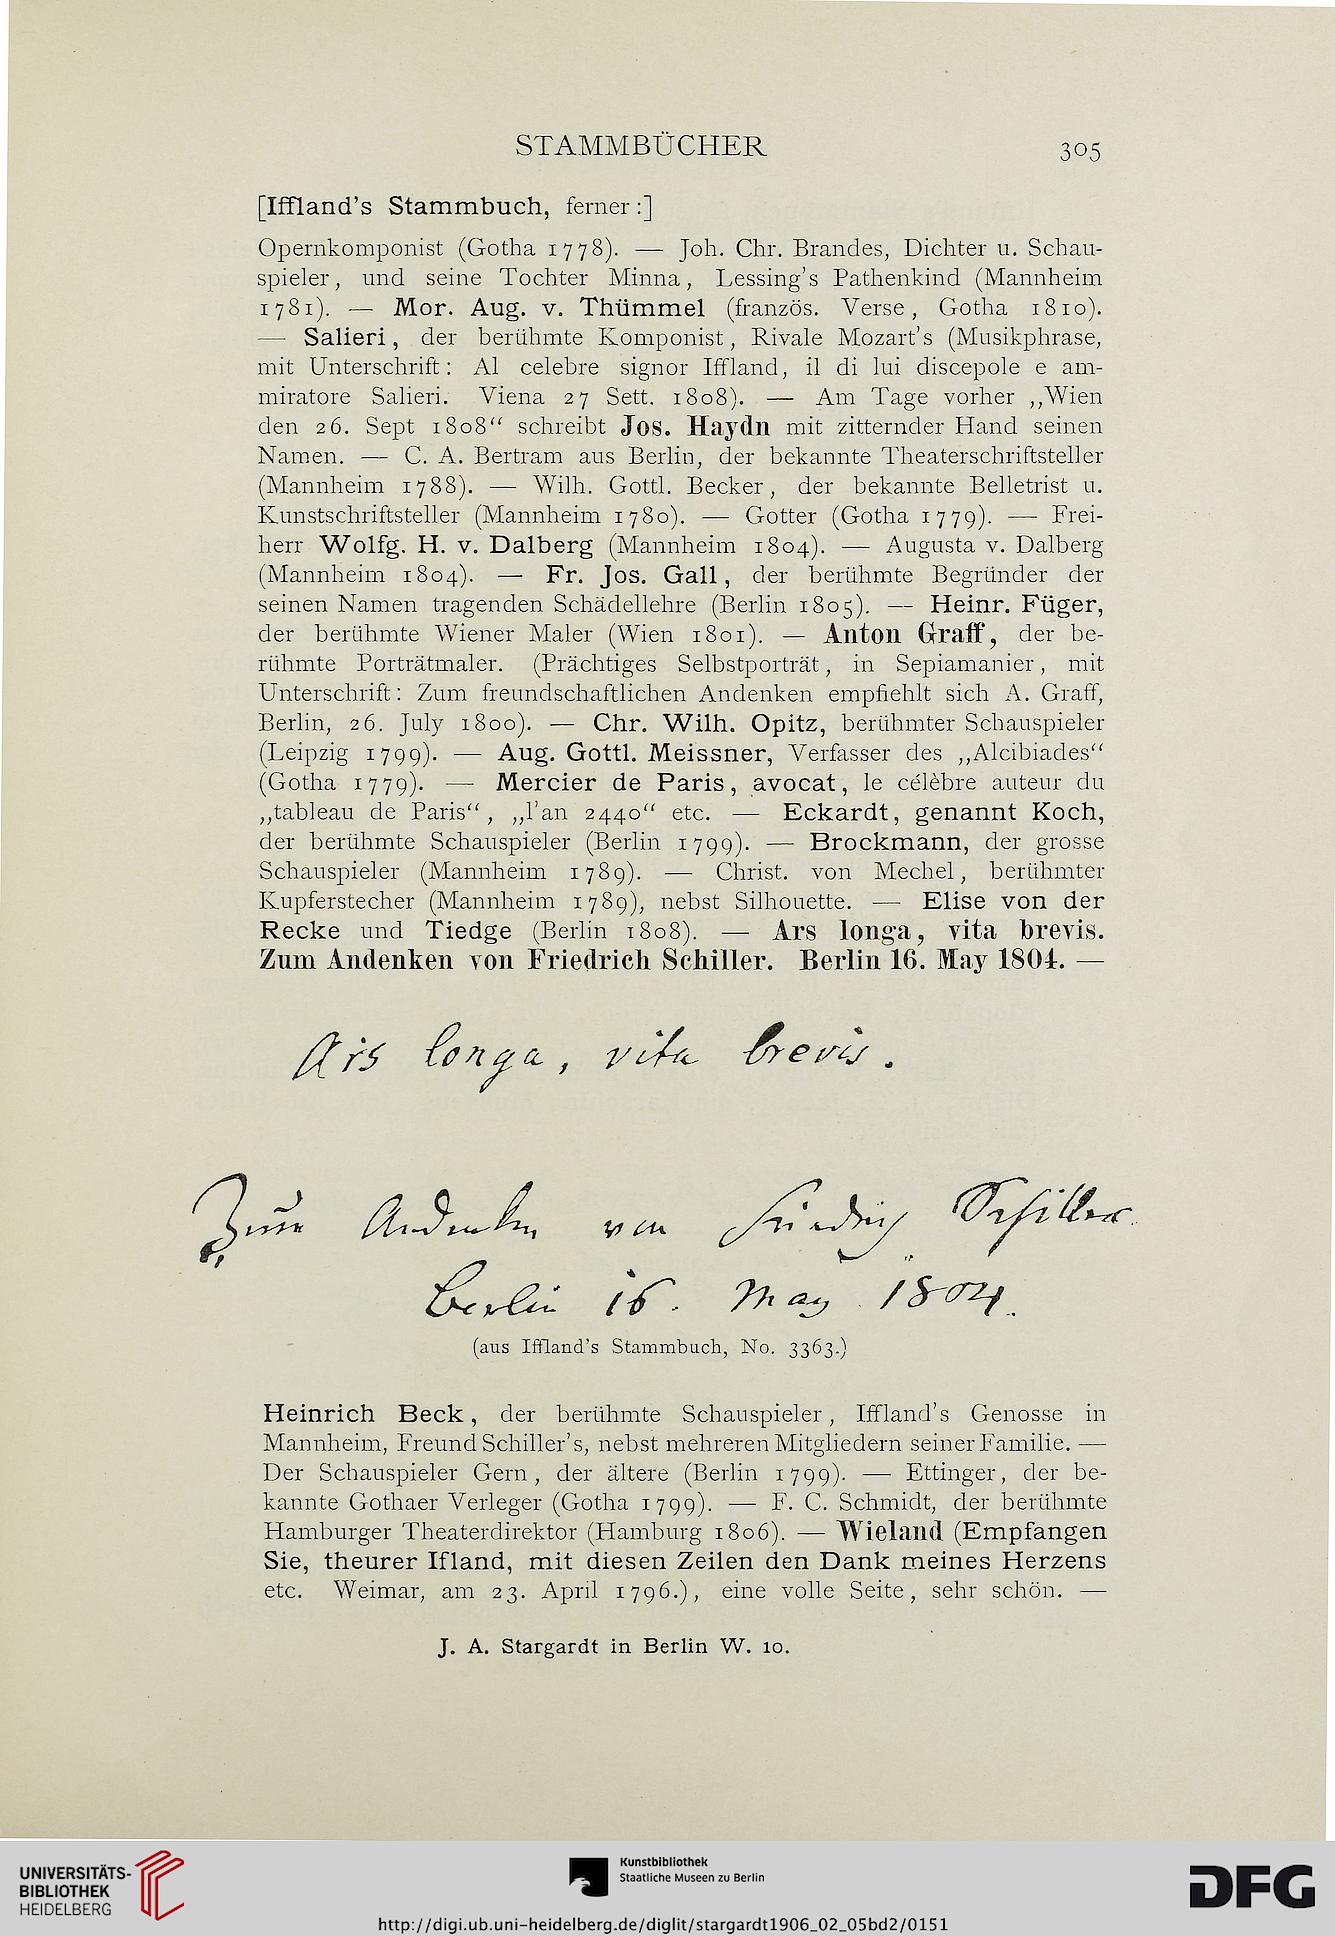 STAMMBÜCHER 305
[Iffland's Stammbuch, ferner:]
Opernkomponist (Gotha 1778). — Joh. Chr. Brandes, Dichter u. Schau-
spieler, und seine Tochter Minna, Lessing's Pathenkind (Mannheim
1781). — Mor. Aug. v. Thümmel (französ. Verse, Gotha 1810).
— Salieri, der berühmte Komponist, Rivale Mozart's (Musikphrase,
mit Unterschrift: Al celebre signor Iffland, il di lui discepole e am-
miratore Salieri. Viena 27 Sett. 1808). — Am Tage vorher „Wien
den 26. Sept 1808“ schreibt Jos. Haydn mit zitternder Hand seinen
Namen. — C. A. Bertram aus Berlin, der bekannte Theaterschriftsteller
(Mannheim 1788). — Wilh. Gottl. Becker, der bekannte Belletrist u.
Kunstschriftsteller (Mannheim 1780). — Gotter (Gotha 1779). — Frei-
herr Wolfg. H. v. Dalberg (Mannheim 1804). — Augusta v. Dalberg
(Mannheim 1804). — Fr. Jos. Gall, der berühmte Begründer der
seinen Namen tragenden Schädellehre (Berlin 1805). — Heinr. Füger,
der berühmte Wiener Maler (Wien 1801). — Anton Graff, der be-
rühmte Porträtmaler. (Prächtiges Selbstporträt, in Sepiamanier, mit
Unterschrift: Zum freundschaftlichen Andenken empfiehlt sich A. Graff,
Berlin, 26. July 1800). — Chr. Wilh. Opitz, berühmter Schauspieler
(Leipzig 1799). — Aug. Gottl. Meissner, Verfasser des „Alcibiades“
(Gotha 1779). — Mercier de Paris, avocat, le célèbre auteur du
„tableau de Paris“, „l'an 2440“ etc. — Eckardt, genannt Koch,
der berühmte Schauspieler (Berlin 1799). — Brockmann, der grosse
Schauspieler (Mannheim 1789). — Christ. von Mechel, berühmter
Kupferstecher (Mannheim 1789), nebst Silhouette. — Elise von der
Recke und Tiedge (Berlin 1808). — Ars longa, vita brevis.
Zum Andenken von Friedrich Schiller. Berlin 16. May 1804. —
Ars longa, vita brevis.
Zum Andenken von Friedrich Schiller.
Berlin 16. May 1804.
(aus Iffland's Stammbuch, No. 3363.)
Heinrich Beck, der berühmte Schauspieler, Iffland's Genosse in
Mannheim, Freund Schiller's, nebst mehreren Mitgliedern seiner Familie. —
Der Schauspieler Gern, der ältere (Berlin 1799). — Ettinger, der be-
kannte Gothaer Verleger (Gotha 1799). — F. C. Schmidt, der berühmte
Hamburger Theaterdirektor (Hamburg 1806). — Wieland (Empfangen
Sie, theurer Ifland, mit diesen Zeilen den Dank meines Herzens
etc. Weimar, am 23. April 1796.), eine volle Seite, sehr schön. —
J. A. Stargardt in Berlin W. 10.
UNIVERSITÄTS-
BIBLIOTHEK
HEIDELBERG
Kunstbibliothek
Staatliche Museen zu Berlin
DFG
http://digi.ub.uni-heidelberg.de/diglit/stargardt1906_02_05bd2/0151